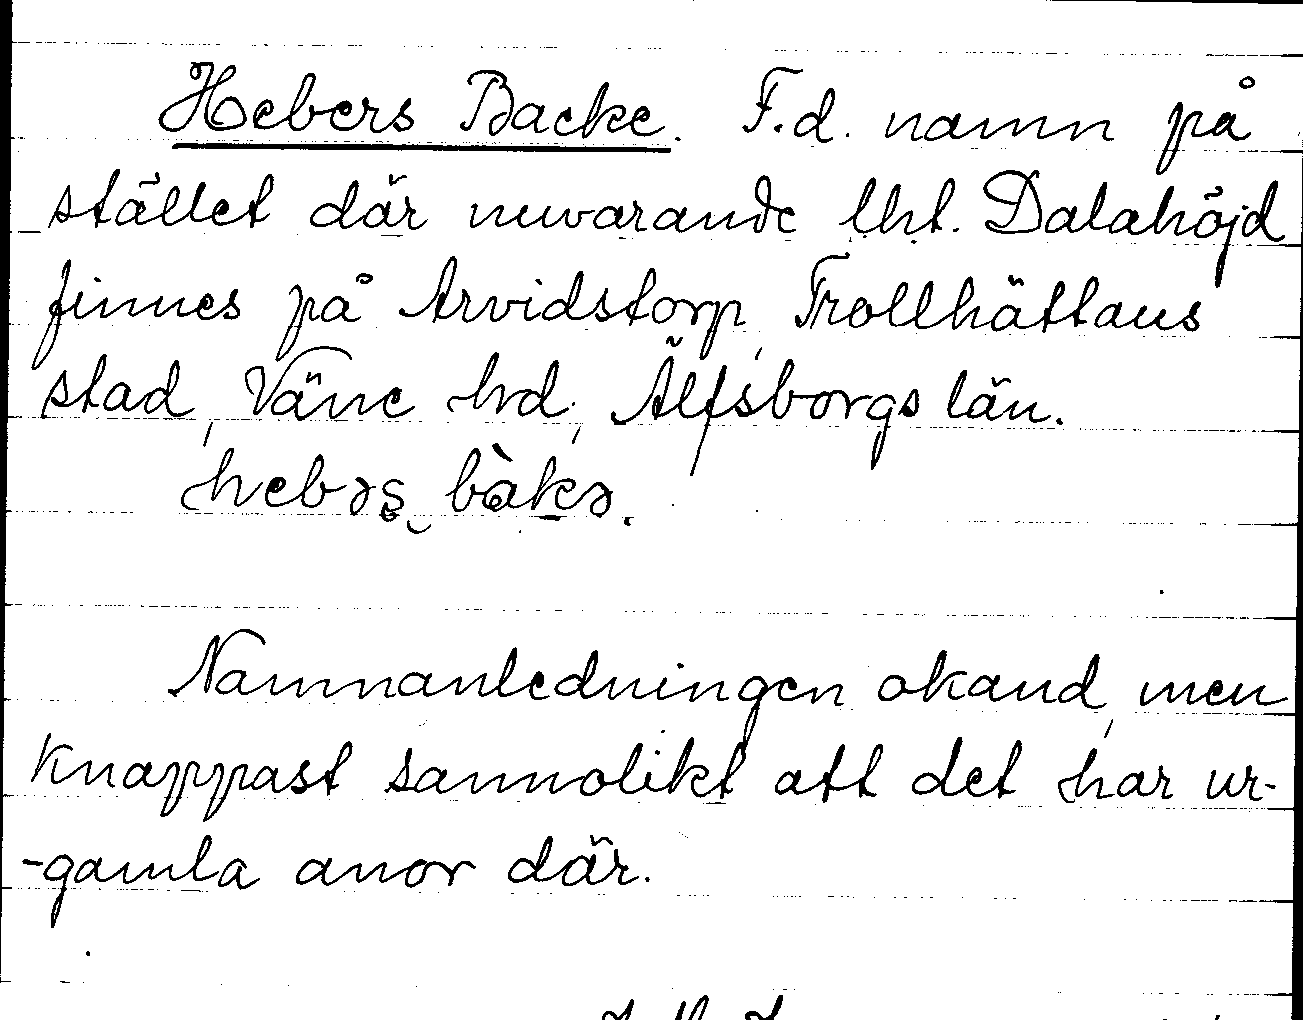 Hebers Backe. F.d. namn på
stället där nuvarande lht. Dalahöjd
finnes på Arvidstorp, Trollhättans
stad, Väne hrd, Älfsborgs län.
hebəs̨ bàkə.
Namnanledningen okand, men
knappast sannolikt att det har ur-
-gamla anor där.